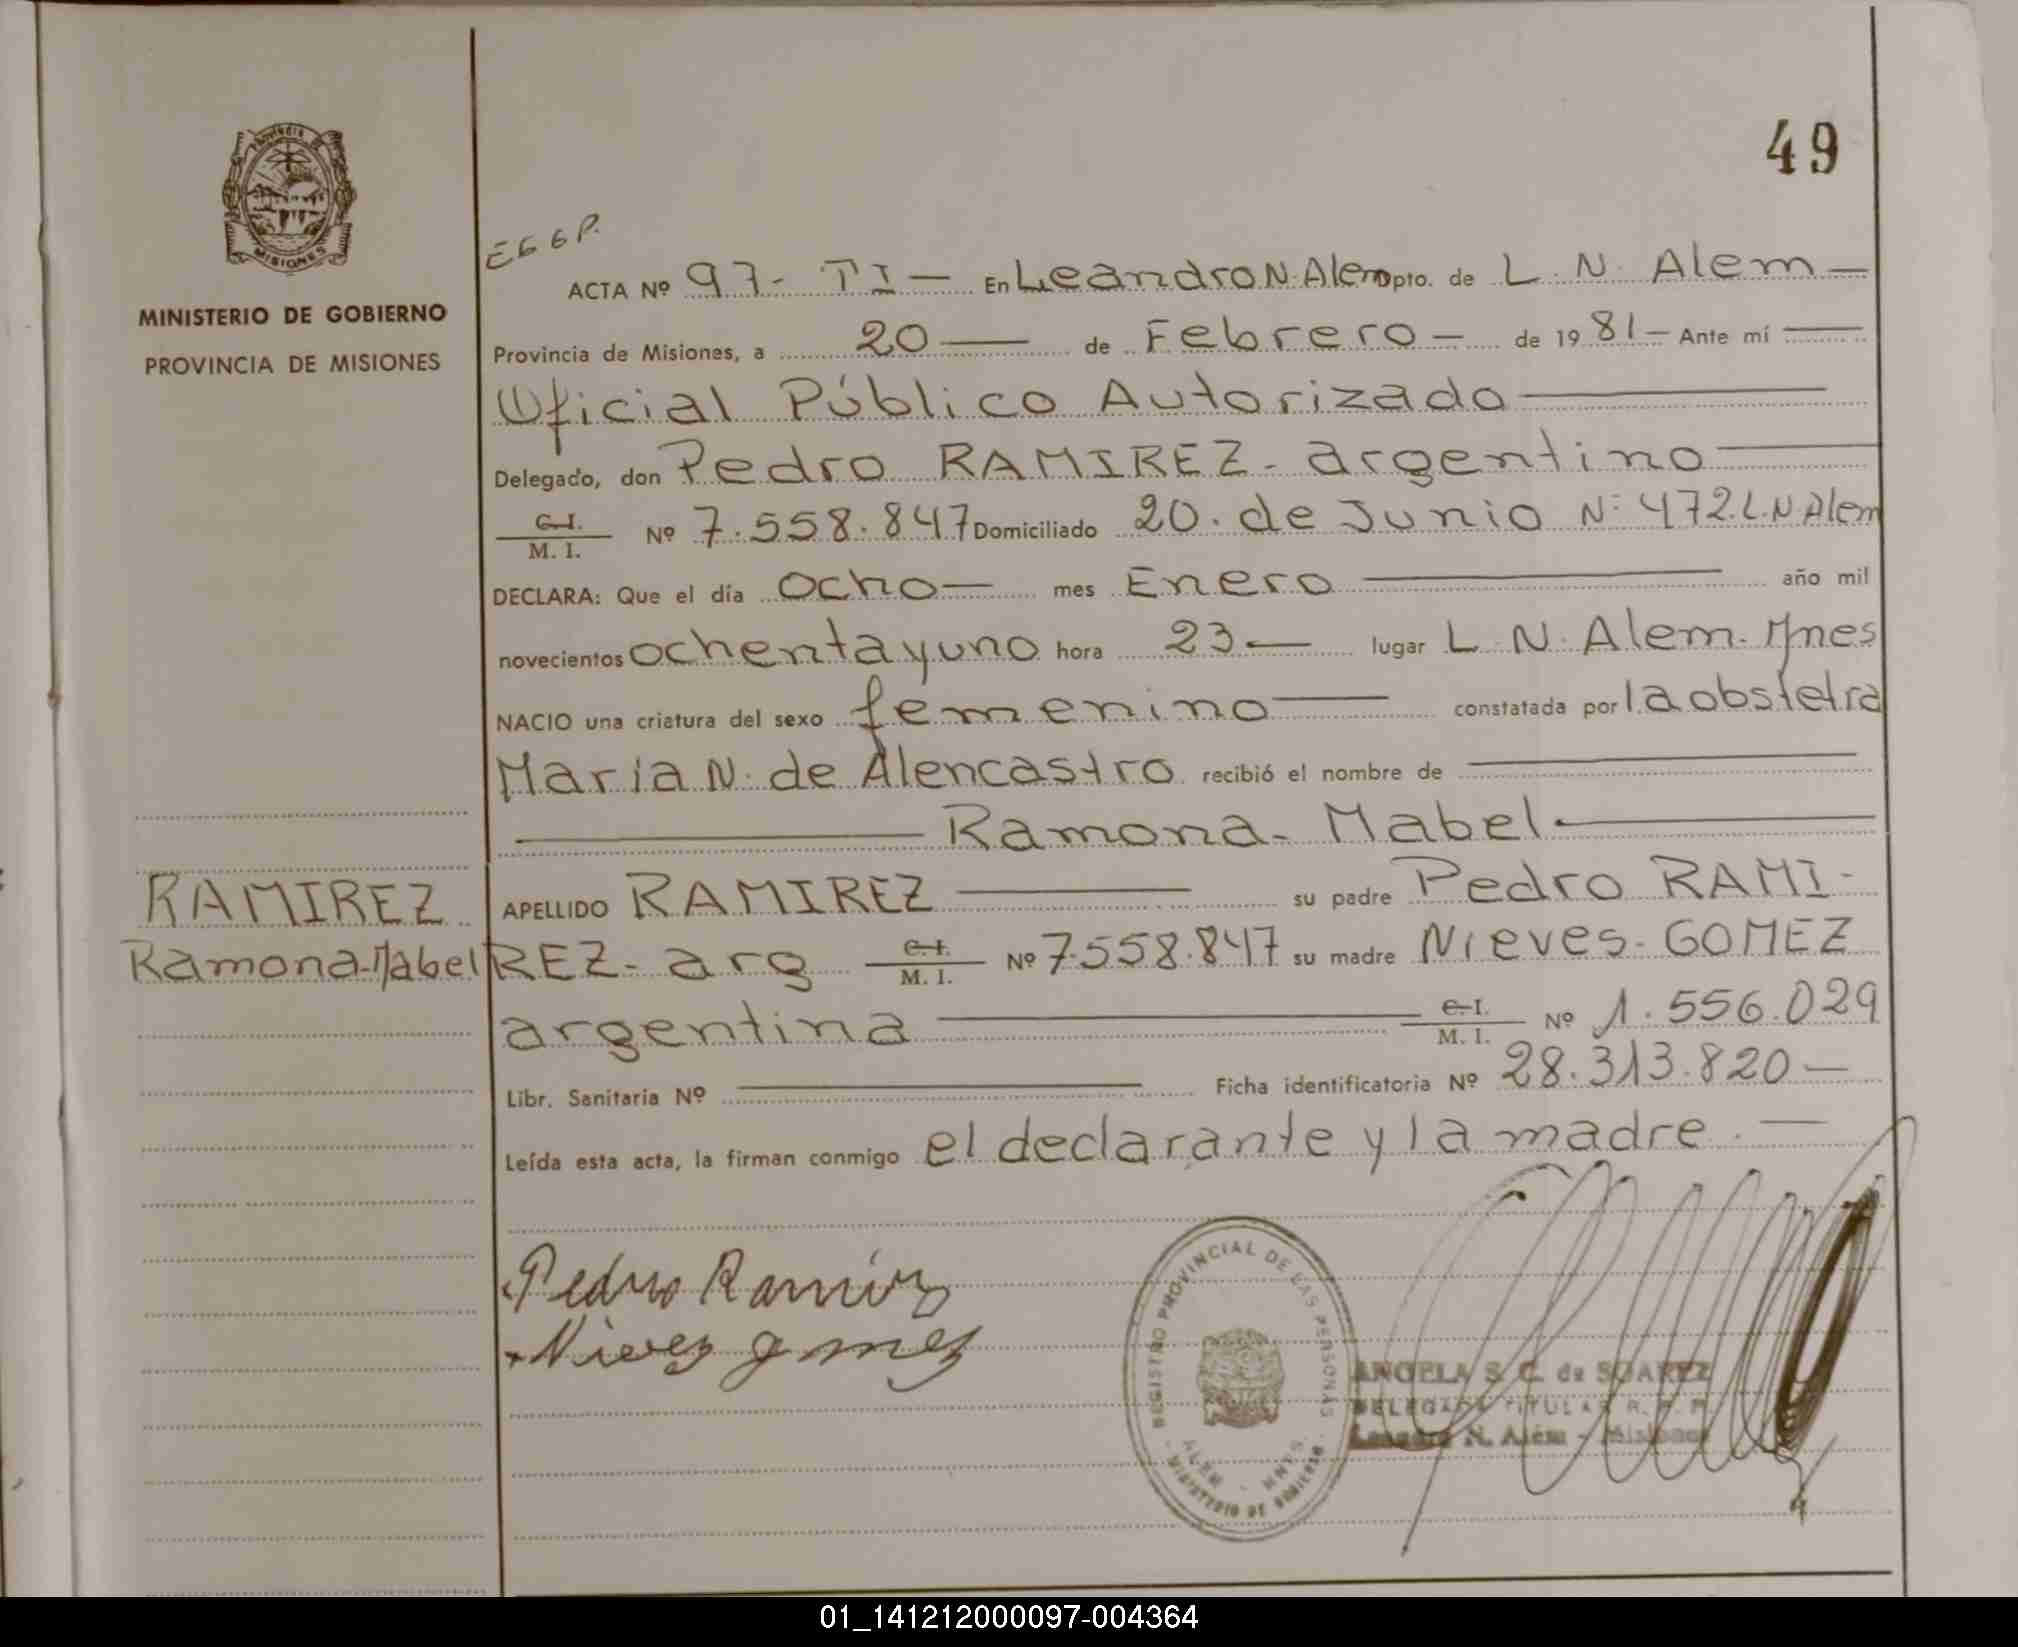 49
MINISTERIO DE GOBIERNO
PROVINCIA DE MISIONES
ACTA Nº 97- TI — En Leandro N. Alem Dpto. de L. N. Alem —
Provincia de Misiones, a 20 — de Febrero — de 19 81 — Ante mí —
Oficial Público Autorizado —
Delegado, don Pedro RAMIREZ - argentino —
C.I. / M. I. Nº 7.558.847 Domiciliado 20 de Junio Nº 472 L.N Alem
DECLARA: Que el día Ocho — mes Enero — año mil
novecientos ochenta y uno hora 23 — lugar L. N. Alem. Mnes
NACIO una criatura del sexo femenino — constatada por la obstetra
María N. de Alencastro recibió el nombre de —
— Ramona - Mabel —
APELLIDO RAMIREZ — su padre Pedro RAMI-
REZ - arg C.I. / M. I. Nº 7.558.847 su madre Nieves - GOMEZ
argentina — C.I. / M. I. Nº 1.556.029
Libr. Sanitaria Nº — Ficha identificatoria Nº 28.313.820 —
Leída esta acta, la firman conmigo el declarante y la madre. —
RAMIREZ
Ramona-Mabel
Pedro Ramirez
Nieves gomez
REGISTRO PROVINCIAL DE LAS PERSONAS
ALEM - MNES.
MINISTERIO DE GOBIERNO
ANGELA S. C. de SUAREZ
DELEGADA TITULAR R. P. P.
Leandro N. Além - Misiones
01_141212000097-004364